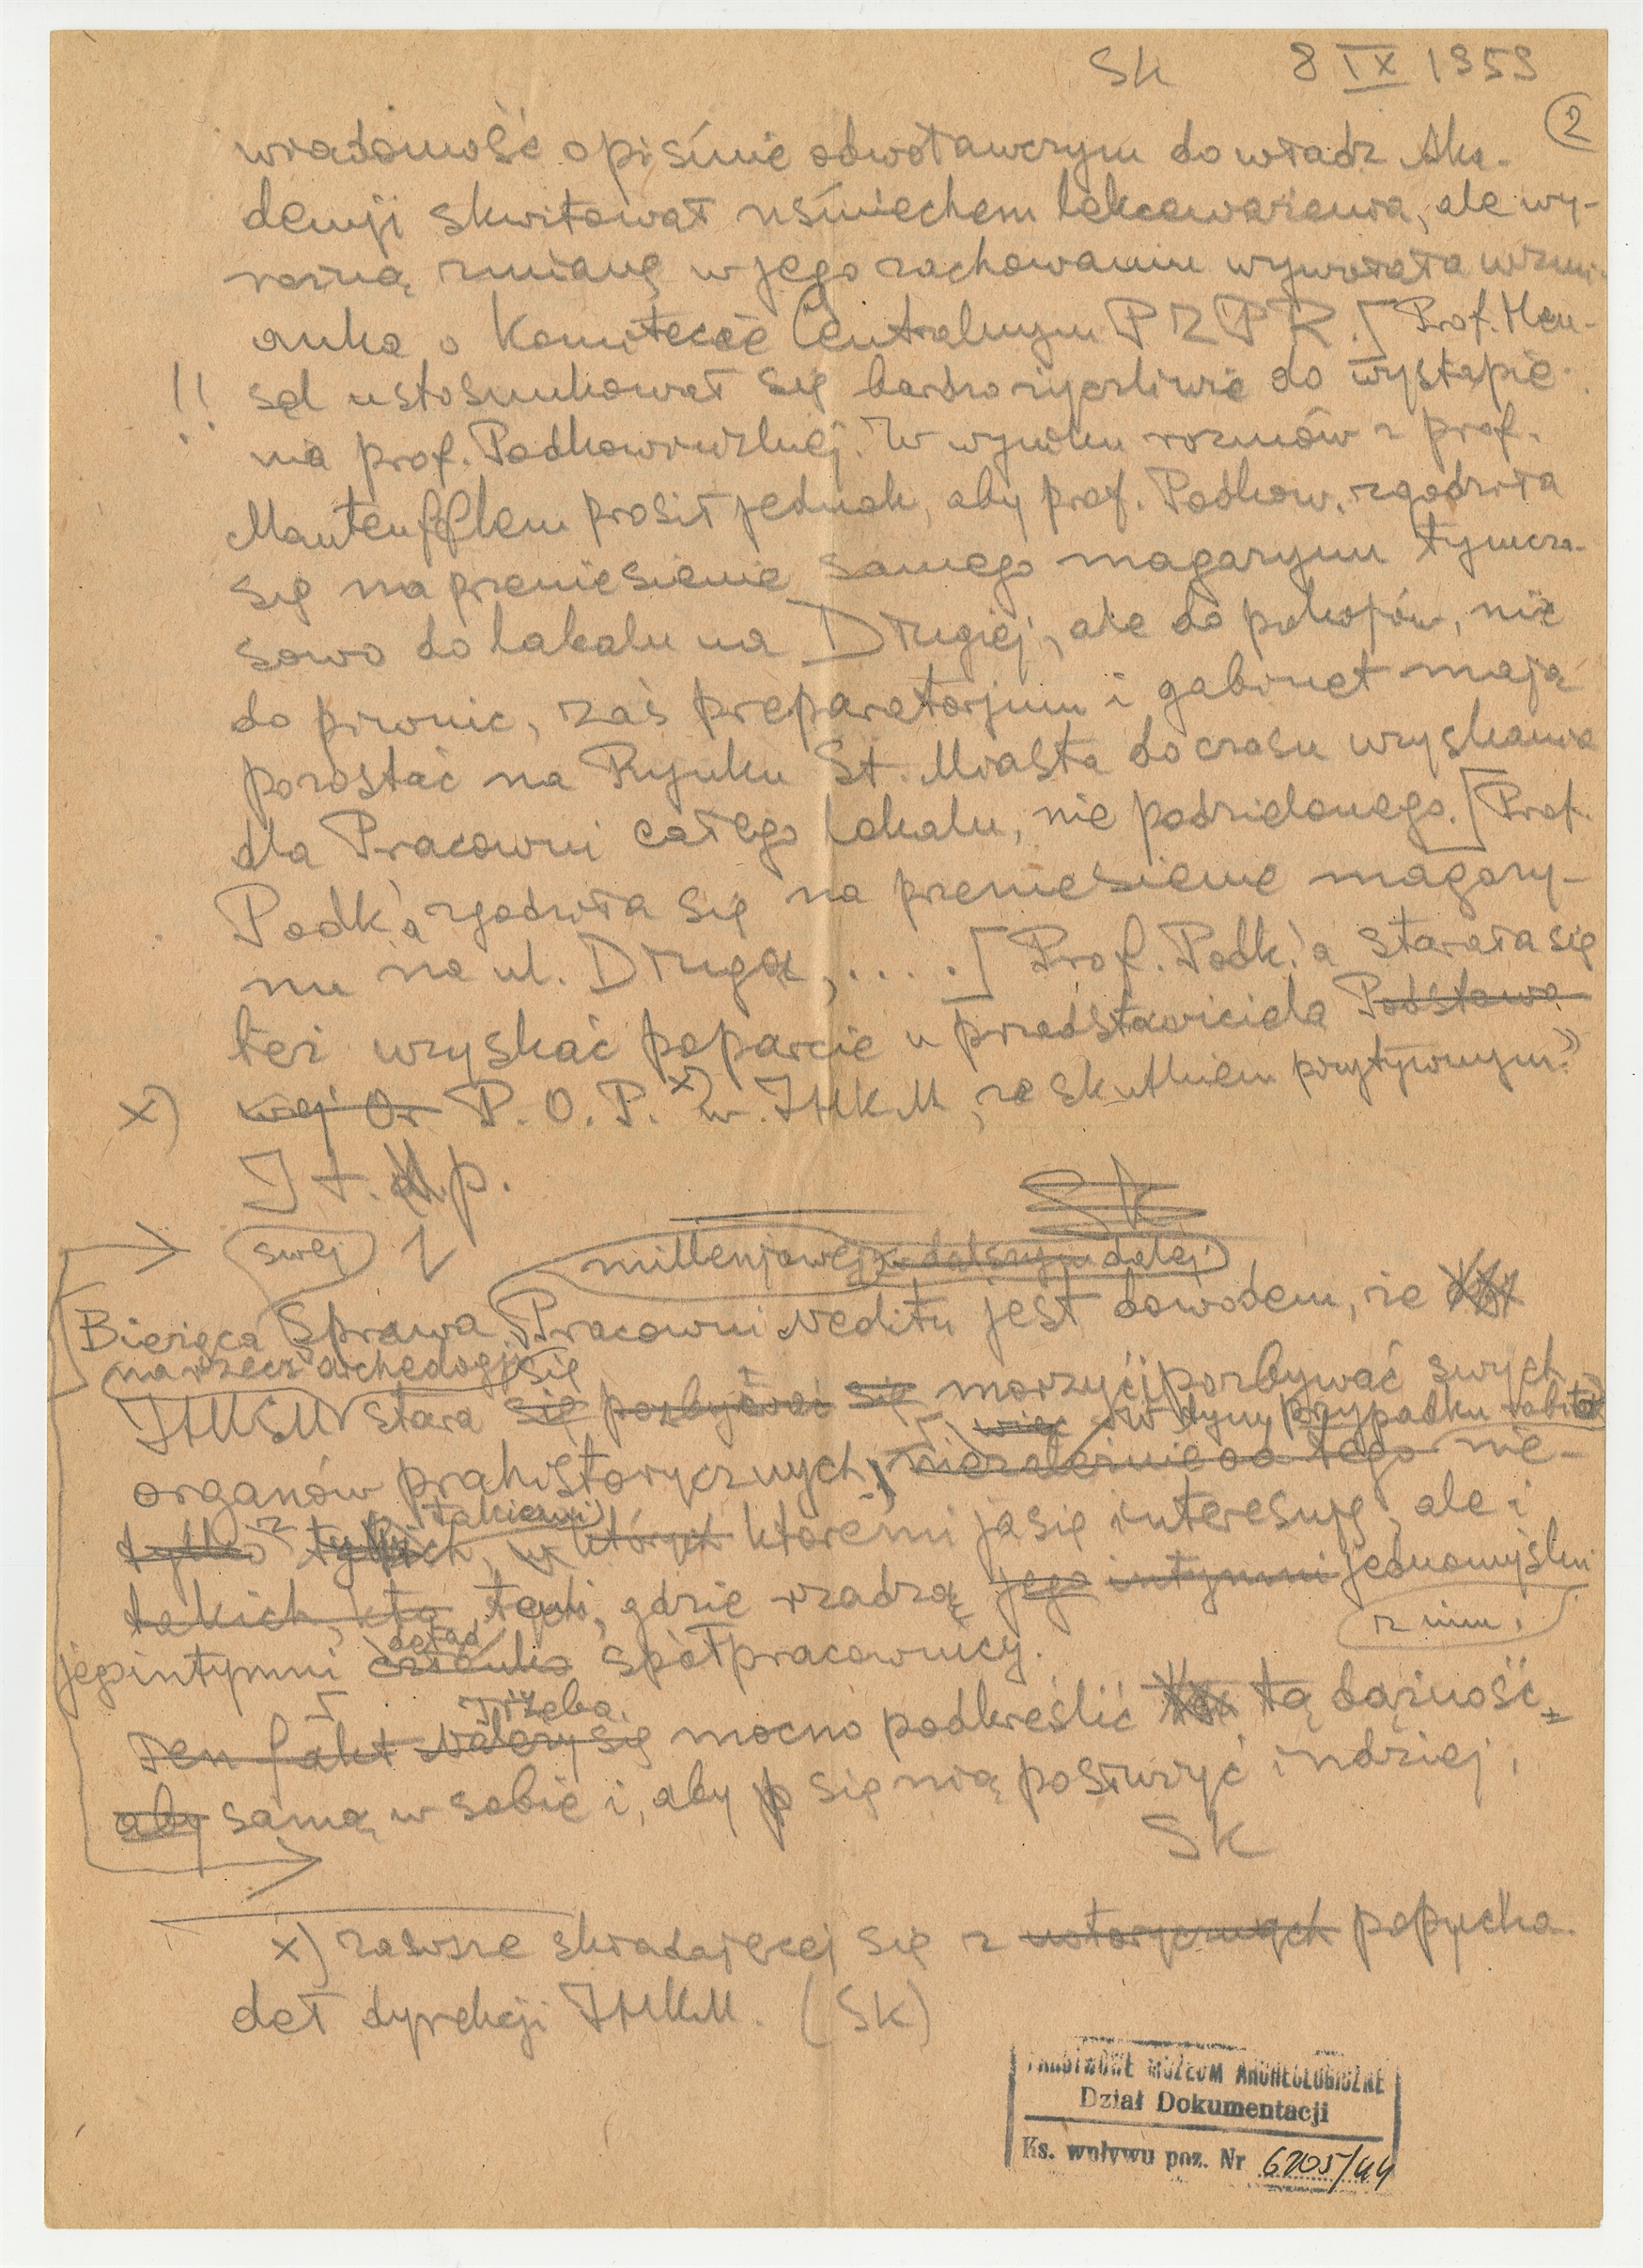 SK 8 IX 1959
2
wiadomość o piśmie odwoławczym do władz Aka-
demji skwitował uśmiechem lekceważenia, ale wy-
raźną zmianę w jego zachowaniu wywołała wzmi-
anka o Komitecie Centralnym PZPR. [Prof. Hen-
!! sel ustosunkował się bardzo życzliwie do wystąpie-
nia prof. Podkowińskiej. W wyniku rozmów z prof.
Manteufflem prosił jednak, aby prof. Podkow. zgodziła
się na przeniesienie samego magazynu tymcza-
sowo do lokalu na Długiej, ale do pokojów, nie
do piwnic, zaś preparatorjum i gabinet mają
pozostać na Rynku St. Miasta do czasu uzyskania
dla Pracowni całego lokalu, nie podzielonego. [Prof.
Podk'a zgodziła się na przeniesienie magazy-
nu na ul. Długą, . . . . [Prof. Podk.'a starała się
też uzyskać poparcie u przedstawiciela Podstawo
x) wej Or P. O. P. x) w IHKM, ze skutkiem pozytywnym."
I t. p.
SK
swej millenjowej w dalszym dalej
Bieżąca Sprawa Pracowni Neolitu jest dowodem, że
na rzecz archeologji się
IHKM stara się pozbywać się morzyć i pozbywać swych
więc w tym przypadku robi to
organów prahistorycznych, niezależnie od tego nie-
takiemi
tylko z tych, w których któremi ja się interesuję, ale i
takich, kto temi, gdzie rządzą jego intymni jednomyślni
z nim,
dotąd
jego intymni członko spółpracownicy.
Trzeba
Ten fakt należy się mocno podkreślić tą dążność
aby samą w sobie i, aby się nią posłużyć indziej.
SK
x) zawsze składającej się z notorycznych popycha-
deł dyrekcji IHKM. (SK)
PAŃSTWOWE MUZEUM ARCHEOLOGICZNE
Dział Dokumentacji
Ks. wpływu poz. Nr 6205/44